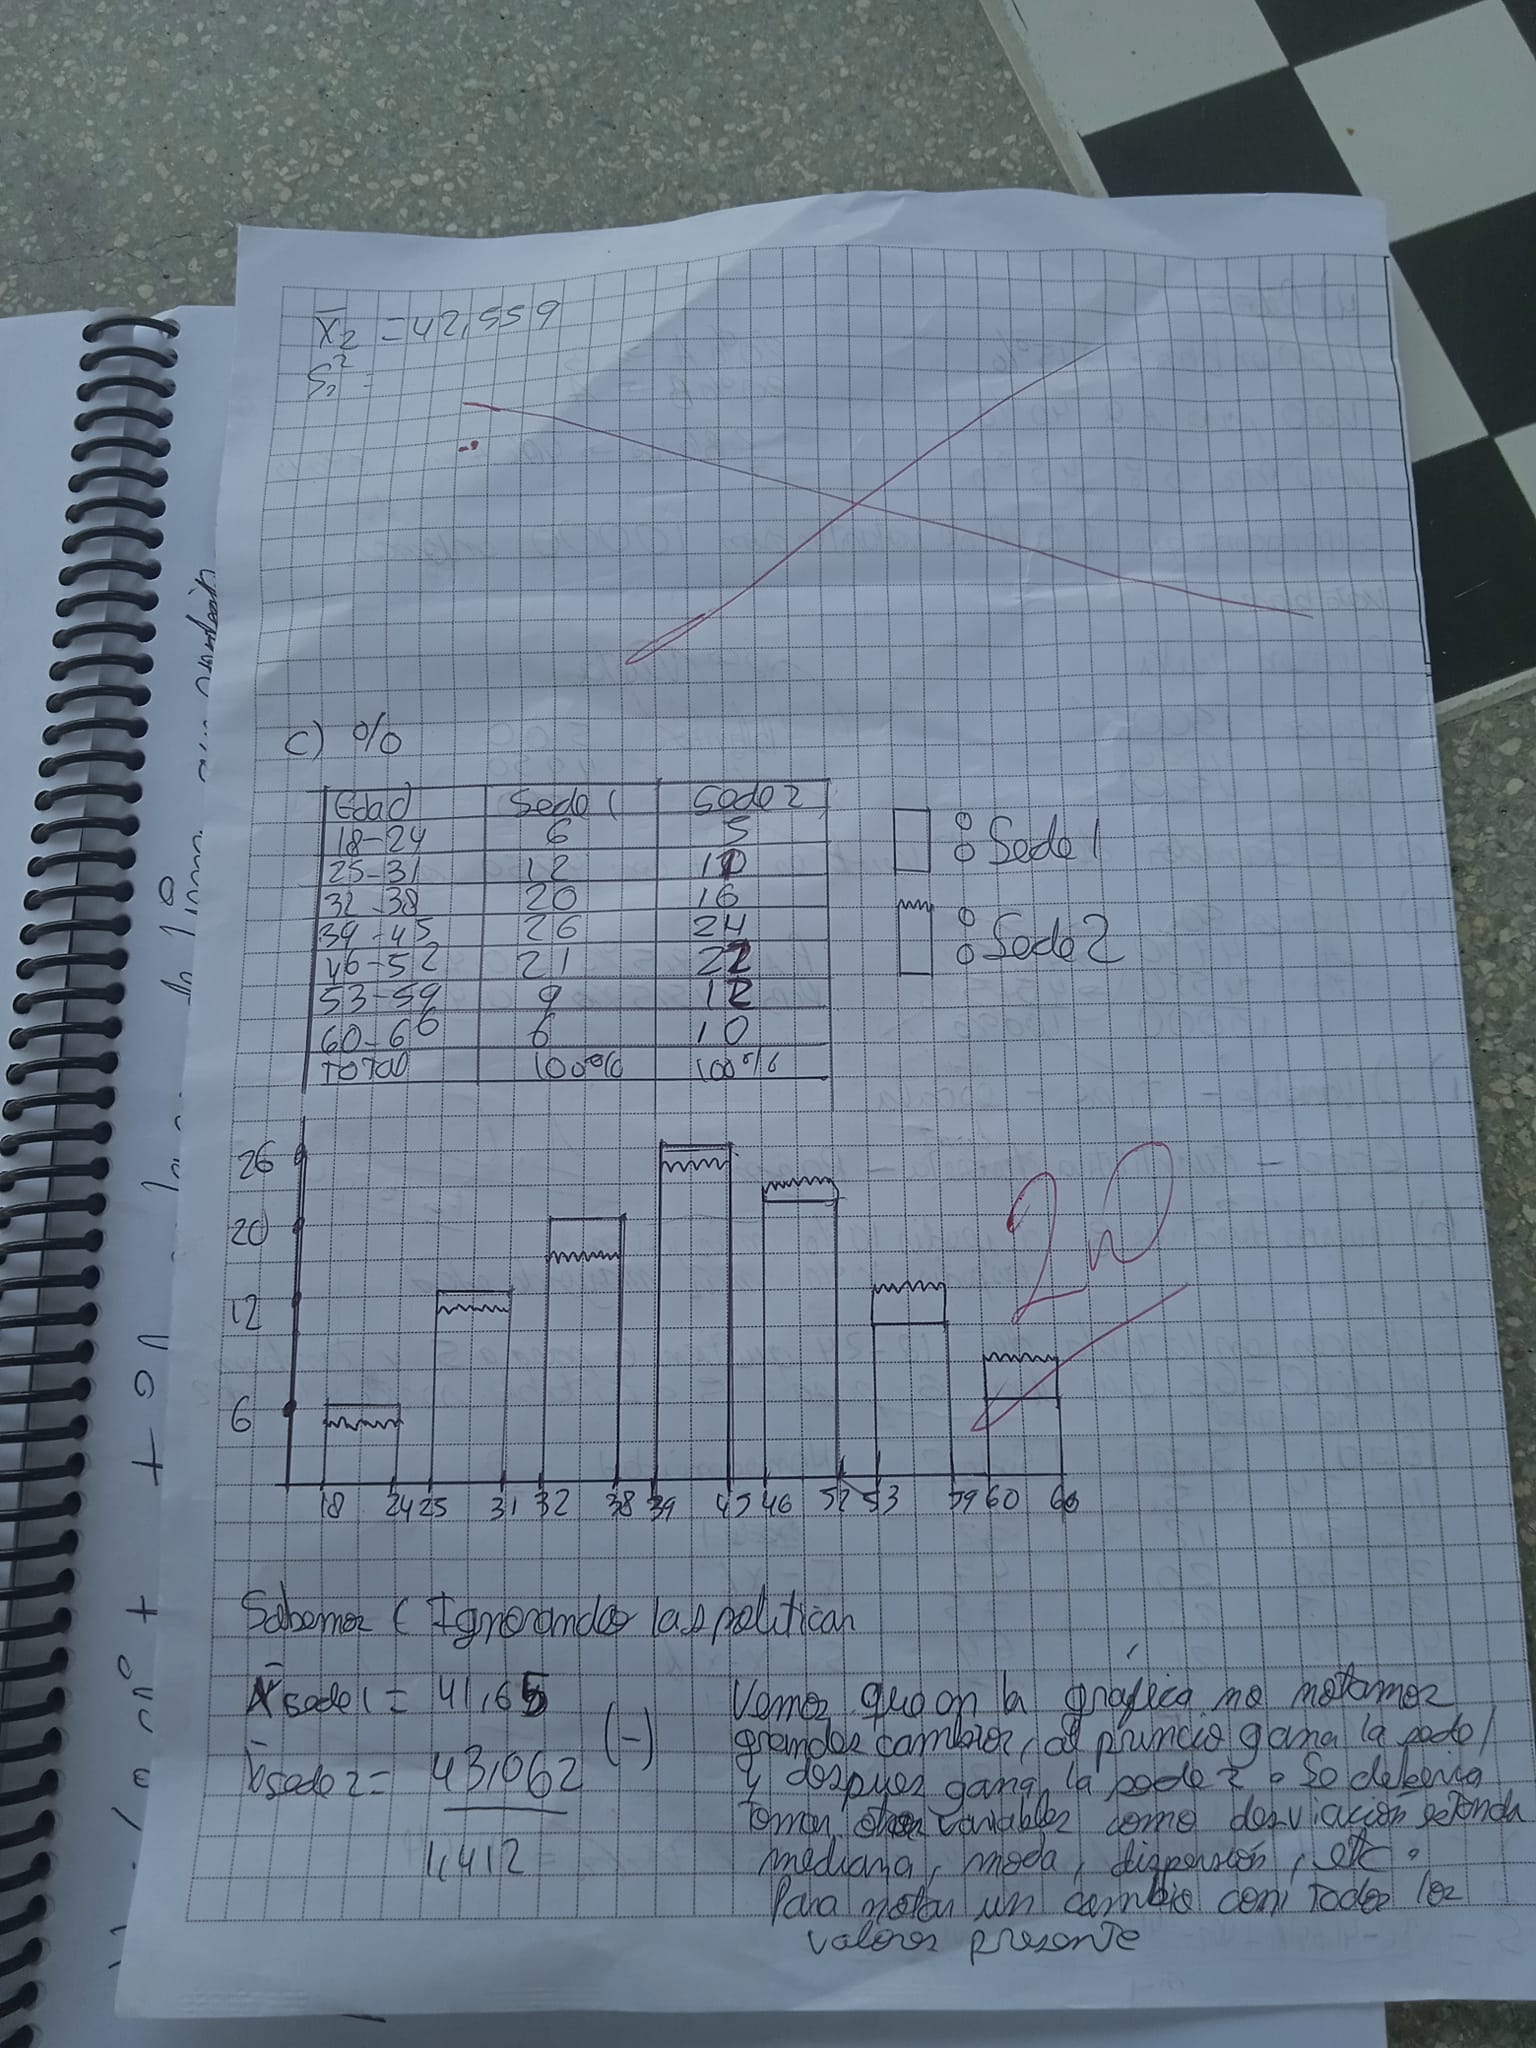 x̄₂ = 42,559
S₂² =
c) %
Edad Sede 1 Sede 2
18-24 6 5
25-31 12 10
32-38 20 16
39-45 26 24
46-52 21 22
53-59 9 12
60-66 6 10
TOTAL 100% 100%
: Sede 1
: Sede 2
26
20
12
6
18 24 25 31 32 38 39 45 46 52 53 59 60 66
20
Sabemos ( Ignorando las politicas
x̄ sede 1 = 41,65
sede 2 = 43,062
(-)
1,412
Vemos que en la gráfica no notamos
grandes cambios, al principio gana la sede 1
y despues gana la sede 2. Se deberia
tomar variables como desviación
mediana, moda, dispersión, etc.
Para notar un cambio con todos los
valores presente